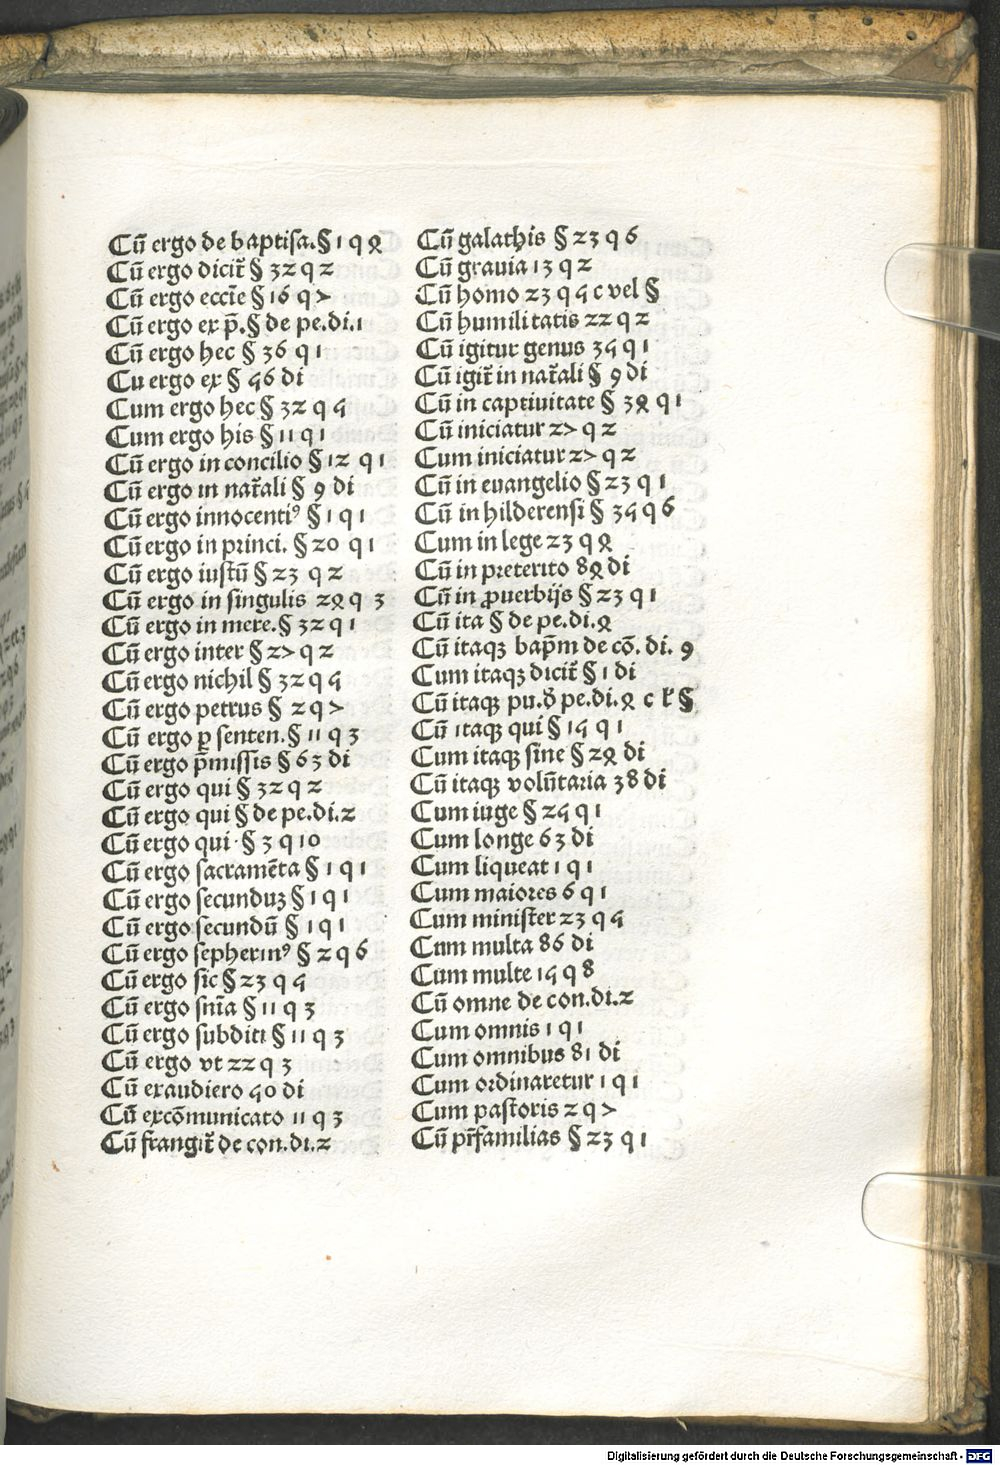 Cū ergo de baptisa.§ 1 q 4
Cū ergo dicit̄ § 32 q 2
Cū ergo eccīe § 16 q 7
Cū ergo ex p̄.§ de pe.di.1
Cū ergo hec § 36 q 1
Cu ergo ex § 56 di
Cum ergo hec § 32 q 5
Cum ergo his § 11 q 1
Cū ergo in concilio § 12 q 1
Cū ergo in nat̄ali § 9 di
Cū ergo innocentiꝰ § 1 q 1
Cū ergo in princi. § 20 q 1
Cū ergo iustū § 23 q 2
Cū ergo in singulis 24 q 3
Cū ergo in mere.§ 32 q 1
Cū ergo inter § 27 q 2
Cū ergo nichil § 32 q 5
Cū ergo petrus § 2 q 7
Cū ergo ꝑ senten.§ 11 q 3
Cū ergo p̄missis § 63 di
Cū ergo qui § 32 q 2
Cū ergo qui § de pe.di.2
Cū ergo qui § 3 q 10
Cū ergo sacramēta § 1 q 1
Cū ergo secunduꝫ § 1 q 1
Cū ergo secundū § 1 q 1
Cū ergo sepherinꝰ § 2 q 6
Cū ergo sic § 23 q 5
Cū ergo snīa § 11 q 3
Cū ergo subditi § 11 q 3
Cū ergo vt 22 q 3
Cū exaudiero 50 di
Cū excōmunicato 11 q 3
Cū frangit̄ de con.di.2
Cū galathis § 23 q 6
Cū grauia 13 q 2
Cū homo 23 q 5 c vel §
Cū humilitatis 22 q 2
Cū igitur genus 35 q 1
Cū igit̄ in nat̄ali § 9 di
Cū in captiuitate § 34 q 1
Cū iniciatur 27 q 2
Cum iniciatur 27 q 2
Cū in euangelio § 23 q 1
Cū in hilderensi § 35 q 6
Cum in lege 23 q 4
Cū in preterito 84 di
Cū in ꝓuerbijs § 23 q 1
Cū ita § de pe.di.4
Cū itaqꝫ bap̄m de cō. di. 9
Cum itaqꝫ dicit̄ § 1 di
Cū itaqꝫ pu.d̄ pe.di.4 c k̄ §
Cū itaqꝫ qui § 15 q 1
Cum itaqꝫ sine § 24 di
Cū itaqꝫ volūtaria 38 di
Cum iuge § 25 q 1
Cum longe 63 di
Cum liqueat 1 q 1
Cum maiores 6 q 1
Cum minister 23 q 5
Cum multa 86 di
Cum multe 15 q 8
Cū omne de con.di.2
Cum omnis 1 q 1
Cum omnibus 81 di
Cum ordinaretur 1 q 1
Cum pastoris 2 q 7
Cū pr̄familias § 23 q 1
Digitalisierung gefördert durch die Deutsche Forschungsgemeinschaft - DFG